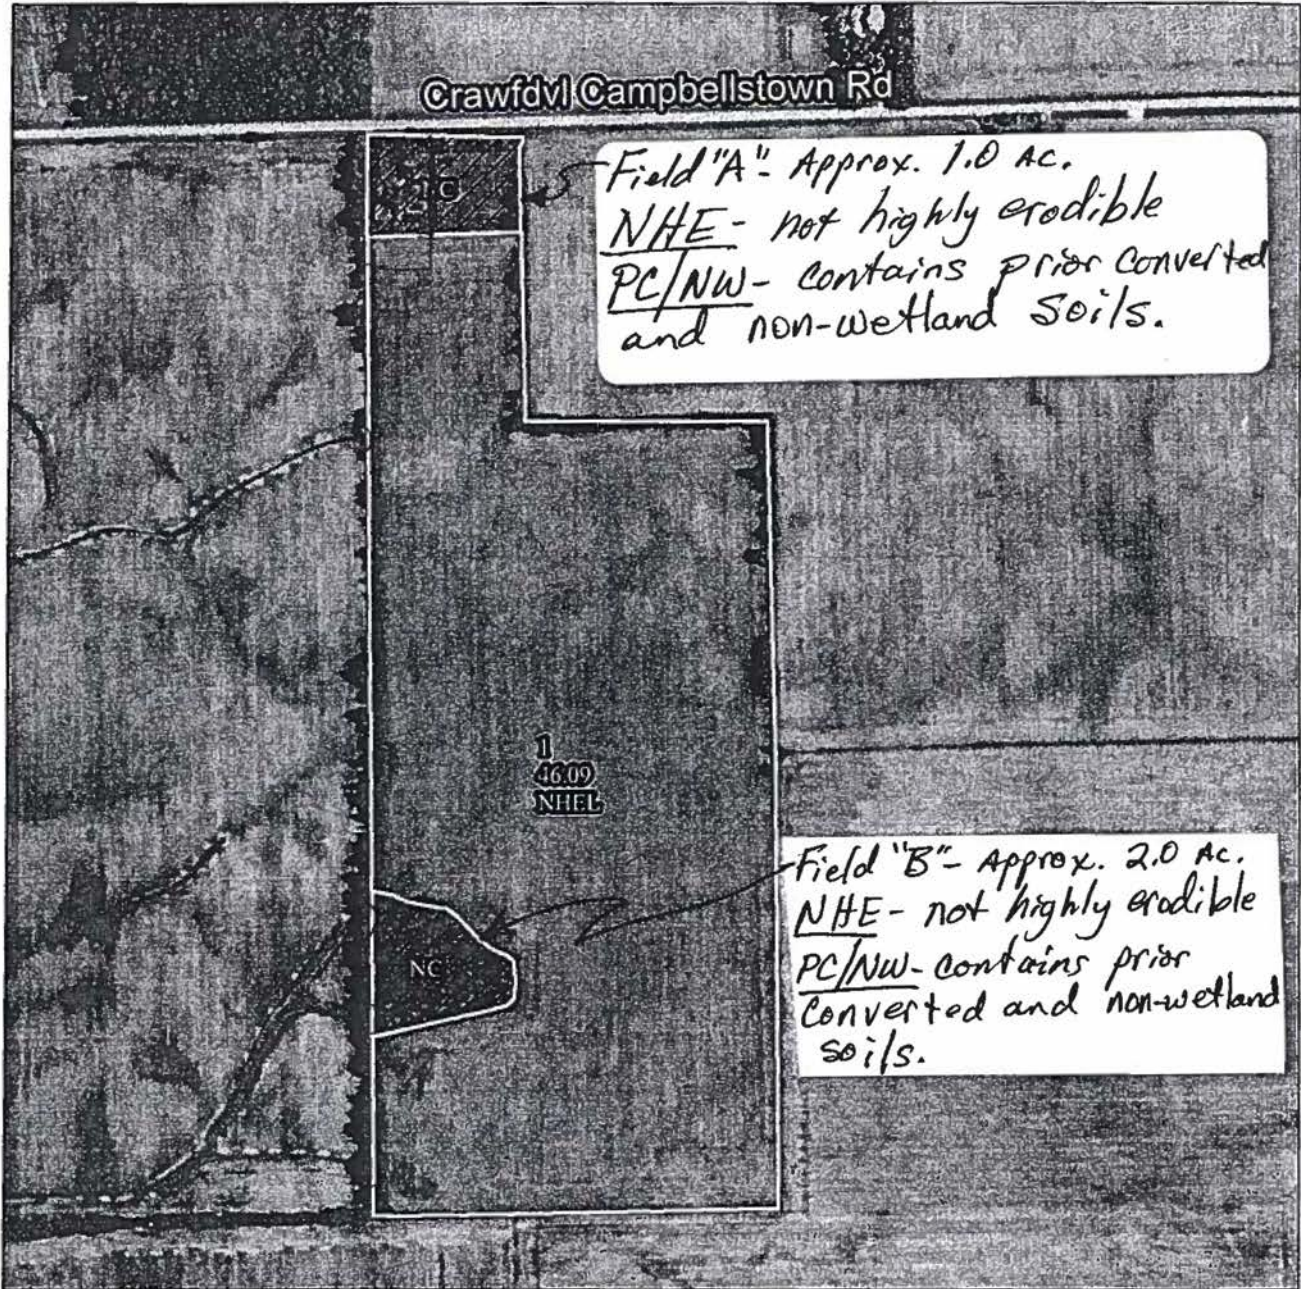 Crawfdvl Campbellstown Rd
Field "A" - Approx. 1.0 Ac.
NHE - not highly erodible
PC/NW - contains prior converted
and non-wetland soils.
1
46.09
NHEL
Field "B" - Approx. 2.0 Ac.
NHE - not highly erodible
PC/NW - contains prior
converted and non-wetland
soils.
NC